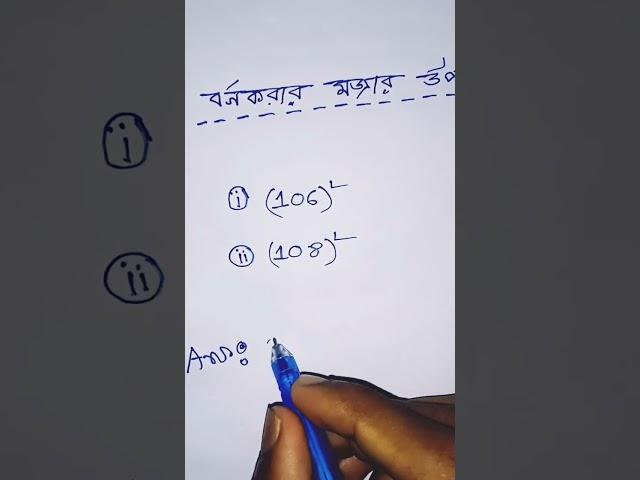 বর্নকরার মজার
i (106)²
ii (108)²
Ans: